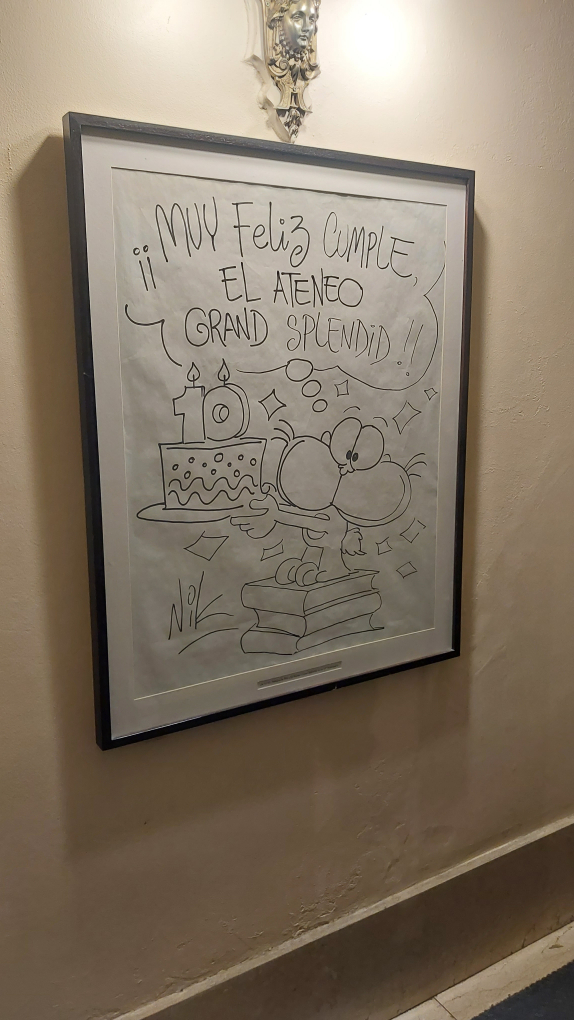 ¡¡MUY Feliz CUMPLE,
EL ATENEO
GRAND SPLENDID!!
10
NiK